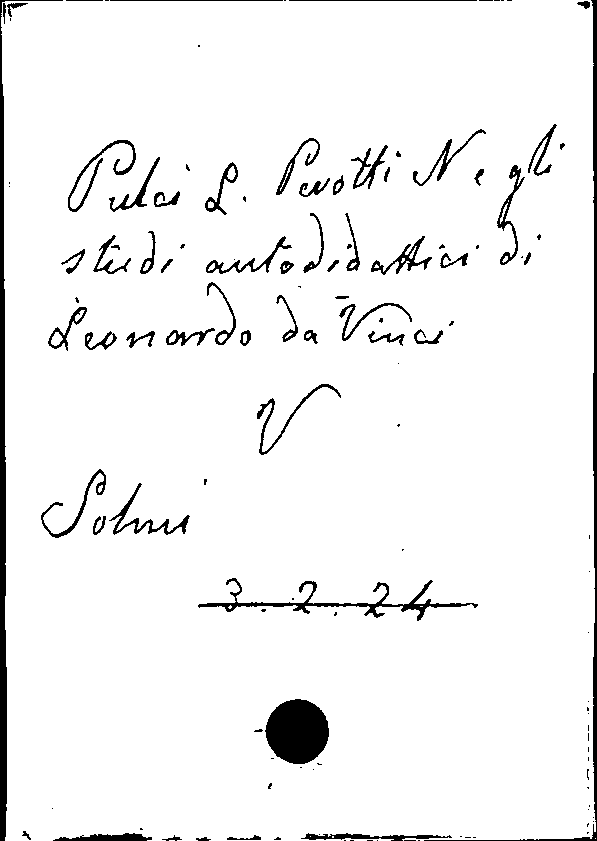 Pulci L. Perotti N e gli
studi autodidattici di
Leonardo da Vinci
V
Solmi
3.2.24